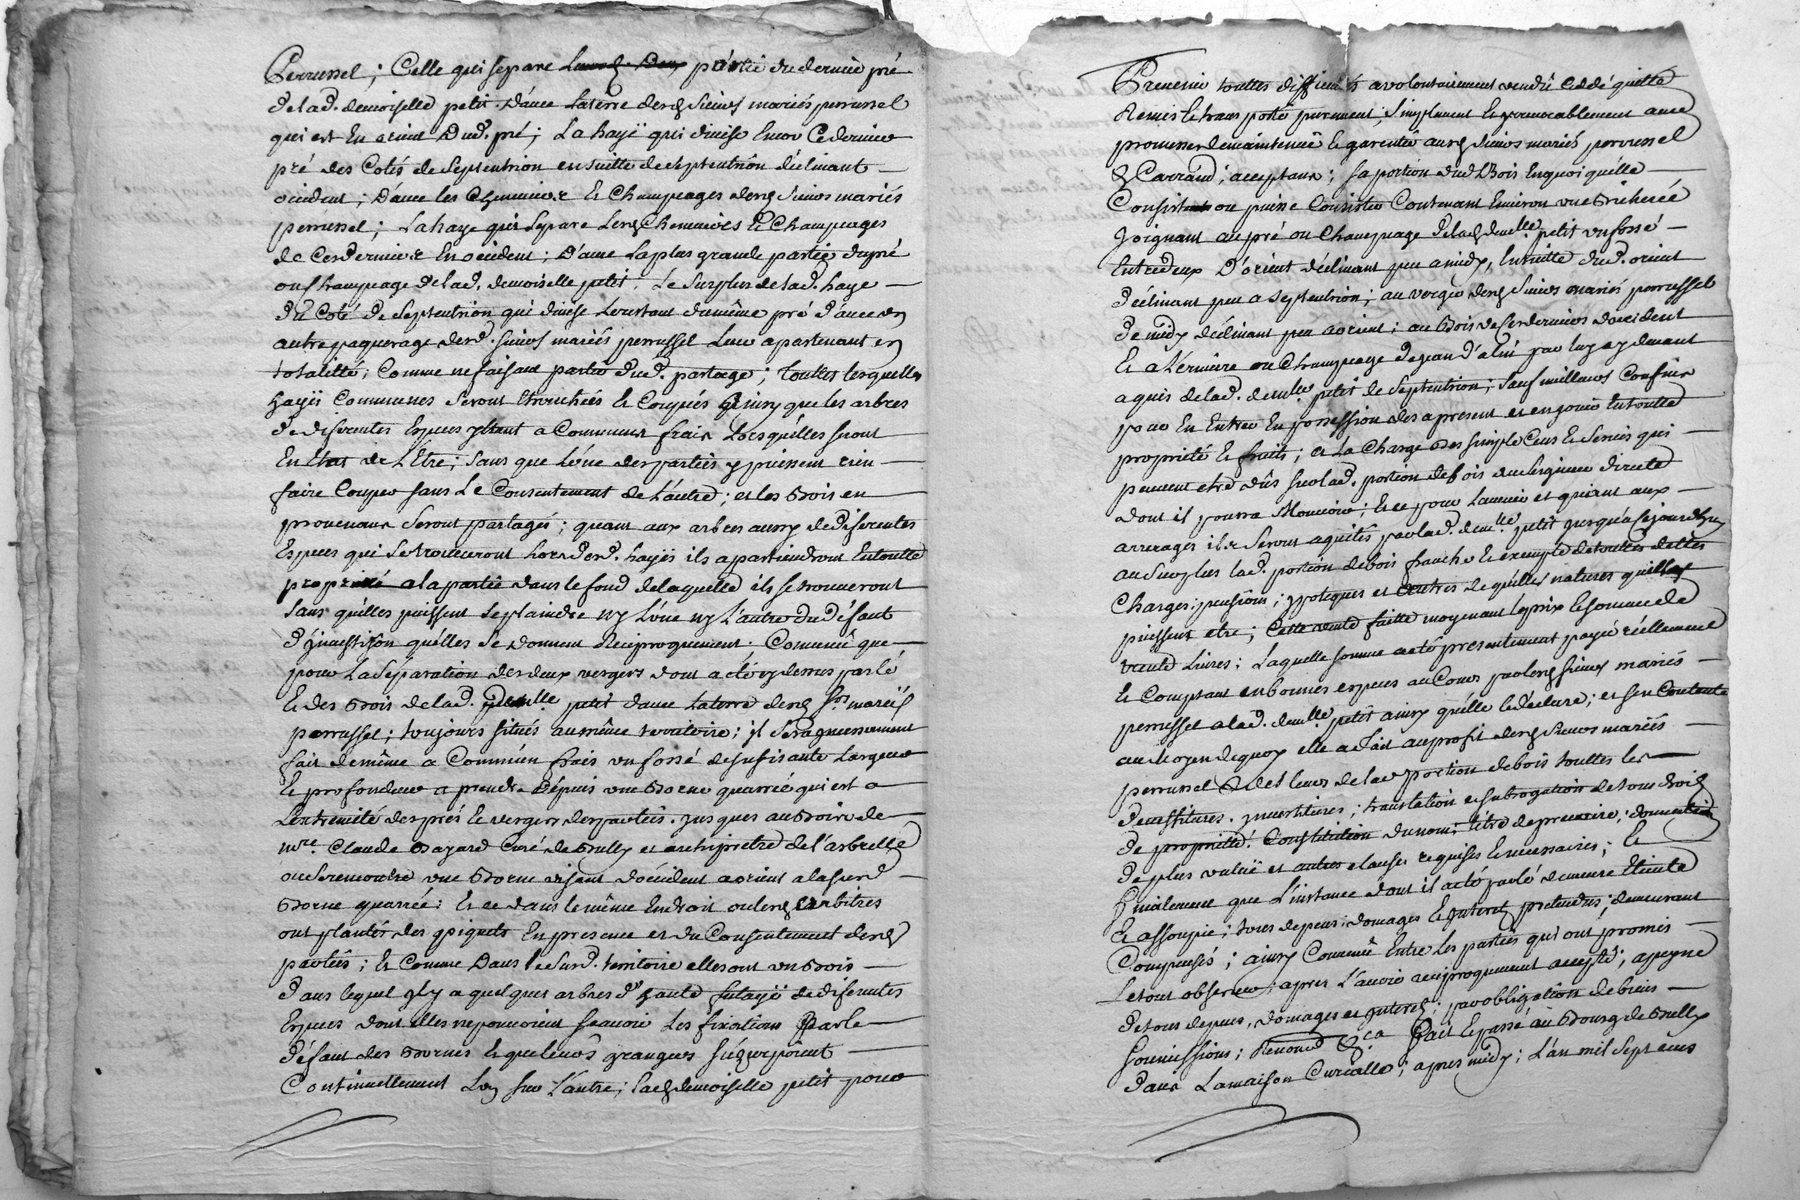 Perrussel ; Celle qui separe partie du dernier pré
de lad. demoiselle petit d'avec la terre desd sieurs mariés perrussel
qui est en orient dud. pré ; La hayë qui divise encor ce dernier
pré des Cotés de Septentrion ensuitte de Septentrion déclinant
occident ; d'avec les Chenevier & Champeages desd sieurs mariés
perrussel ; La haye qui separe lesd Chenevières & Champeages
de ces derniers en occident ; D'avec la plus grande partie du pré
ou Champeage de lad. demoiselle petit ; Le surplus de lad. haye
du Coté de Septentrion qui divise le restant du même pré d'avec un
autre paquerage desd. sieurs mariés perrussel leur apartenant en
totalitté ; Comme ne faisant partie dud. partage ; touttes lesquelles
hayës Communes seront & Coupés ainsy que les arbres
de diferentes especes y étant a Communs frais lorsquelles seront
en état de l'être ; sans que l'une des parties y puissent rien
faire Couper sans le Consentement de l'autre ; et les Bois en
provenant seront partagés ; quant aux arbres aussy de diferentes
Especes qui se trouveront hors desd. hayës ils apartiendront en toutte
proprieté a la partie dans le fond de laquelle ils se trouveront
sans quelles puissent se plaindre ny l'une ny l'autre du défaut
d'jnvestison quelles se donnent Reciproquement ; Convenû que
pour la séparation des deux vergers dont a été cy dessus parlé
& des Bois de lad. Demlle petit d'avec la terre desd srs mariés
perrussel ; toujours situés au même territoire ; il sera
fait de même a Commun frais un fossé de sufisante largeur
& profondeur a prendre depuis une Borne quarrée qui est a
l'extremité des prés & vergers des parties jusques au Bois de
mre. Claude Bayard Curé de Bully et archiprêtre de l'arbrelle
ou se rencontre une Borne visant d'occident a orient a lad
Borne quarrée ; Et ce dans le même Endroit ou lesd arbitres
ont plantés des piquets En presence et du Consentement desd
parties ; Et Comme dans le susd. territoire elles ont un Bois
dans lequel il y a quelques arbres d'haute futayë de diferentes
Especes dont elles ne pouvoient sçavoir les fixations par le
défaut des Bornes & que leurs
Continuellement l'un sur l'autre ; lad demoiselle petit pour
Prevenir touttes difficultés a volontairement vendû cedé quitté
Remis & transporté purement ; simplement & irrevocablement avec
promesse de maintenuë & garentie auxd sieurs mariés perrussel
& Carrand ; aceptans ; sa portion dud Bois en quoi quelle
Consiste ou puisse Consister Contenant Environ une Bicherée
Joignant au pré ou Champeage de lad Demlle petit un fossé
Entredeux D'orient déclinant peu a midy, En suitte dud. orient
déclinant peu a Septentrion ; au verger desd sieurs mariés perrussel
de midy déclinant peu a orient ; au Bois de ces derniers d'occident
Et a Champeage de par luy cy devant
aquis de lad. demlle petit de Septentrion ; sauf meilleurs Confins
pour En Entrer En possession des a present et en jouir en toutte
proprieté & fruits ; a la Charge des simples Cens & Servis qui
peuvent etre dûs sur lad. portion de bois au Seigneur directe
dont il pourra Mouvoir ; & ce pour l'avenir et quant aux
arrerages ils seront aquités par lad. demlle petit jusqu'a ce jourdhuy
au surplus lad. portion de bois franche & exempte de touttes dettes
Charges ; pensions ; ypoteques et autres de quelles natures quelles
puissent etre ; Cette vente faitte moyenant le prix & somme de
trente Livres ; Laquelle somme a été presentement payée réellement
& Comptant en bonnes especes au Cours par lesd sieurs mariés
perrussel a lad. demlle petit ainsy quelle le déclare ; et s'en Contente
au Moyen dequoy elle a fait au profit desd sieurs mariés
perrussel & des leurs de lad portion de bois touttes les
devestitures, jnvestitures ; translation et subrogation de tous droits
de proprieté Constitution du nom & titre de precaire, donnation
de plus valuë et autres clauses requises & necessaires ; Et
finalement que l'instance dont il a été parlé demeure éteinte
& assoupie ; tous depens ; domages & jnterets pretendus ; demeurant
Compensés ; ainsy Convenû Entre les parties qui ont promis
Le tout observer ; apres l'avoir reciproquement accepté ; a peyne
de tous depens, domages et jnterets ; par obligation de biens
soumissions ; Renonce &ca Fait & passé au Bourg de Bully
dans la maison Curialle ; apres midy ; L'an mil sept cens